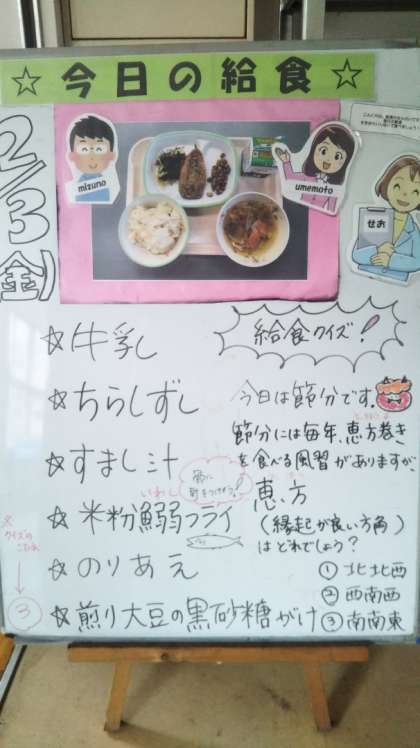 ☆ 今日の給食 ☆
2/3(金)
mizuno
umemoto
せお
☆牛乳
☆ちらしずし
☆すまし汁
☆米粉鰯フライ
いわし
☆のりあえ
☆煎り大豆の黒砂糖がけ
給食クイズ!
今日は節分です。
節分には毎年、恵方巻き
を食べる風習がありますが、
恵方
(縁起が良い方角)
はどれでしょう?
①北北西
②西南西
③南南東
※
クイズの
こたえ
↓
③